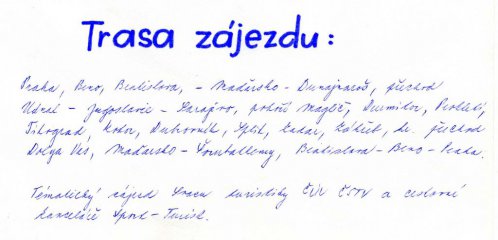 Trasa zájezdu:
Praha, Brno, Bratislava, - Maďarsko - přechod
- Jugoslavie - Sarajevo, pohoří Maglič, Durmitor,
Titograd, Kotor, Dubrovník, Split, Zadar, Záhřeb, přechod
Dolga Vas, Maďarsko - Szombathely, Bratislava - Brno - Praha.
Tématický zájezd svazu turistiky ČÚV ČSTV a cestovní
kanceláře Sport - Turist.